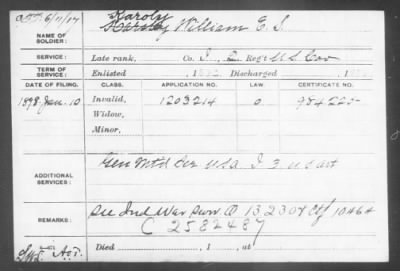 6/11/17 Karoly
NAME OF SOLDIER: William E. S.
SERVICE: Late rank, Co. I, 2 Reg't U S Cav
TERM OF SERVICE: Enlisted 18 , Discharged 18
DATE OF FILING. CLASS. APPLICATION NO. LAW CERTIFICATE NO.
1898 Jan. 10 Invalid, 1203214 0 984225
Widow,
Minor,
ADDITIONAL SERVICES: Gen Mtd Ser U S A. I 3 U S Art
REMARKS: See Ind War Surv 13 2 3 04 Ctf 10464
C 2582487
Died , 1 , at